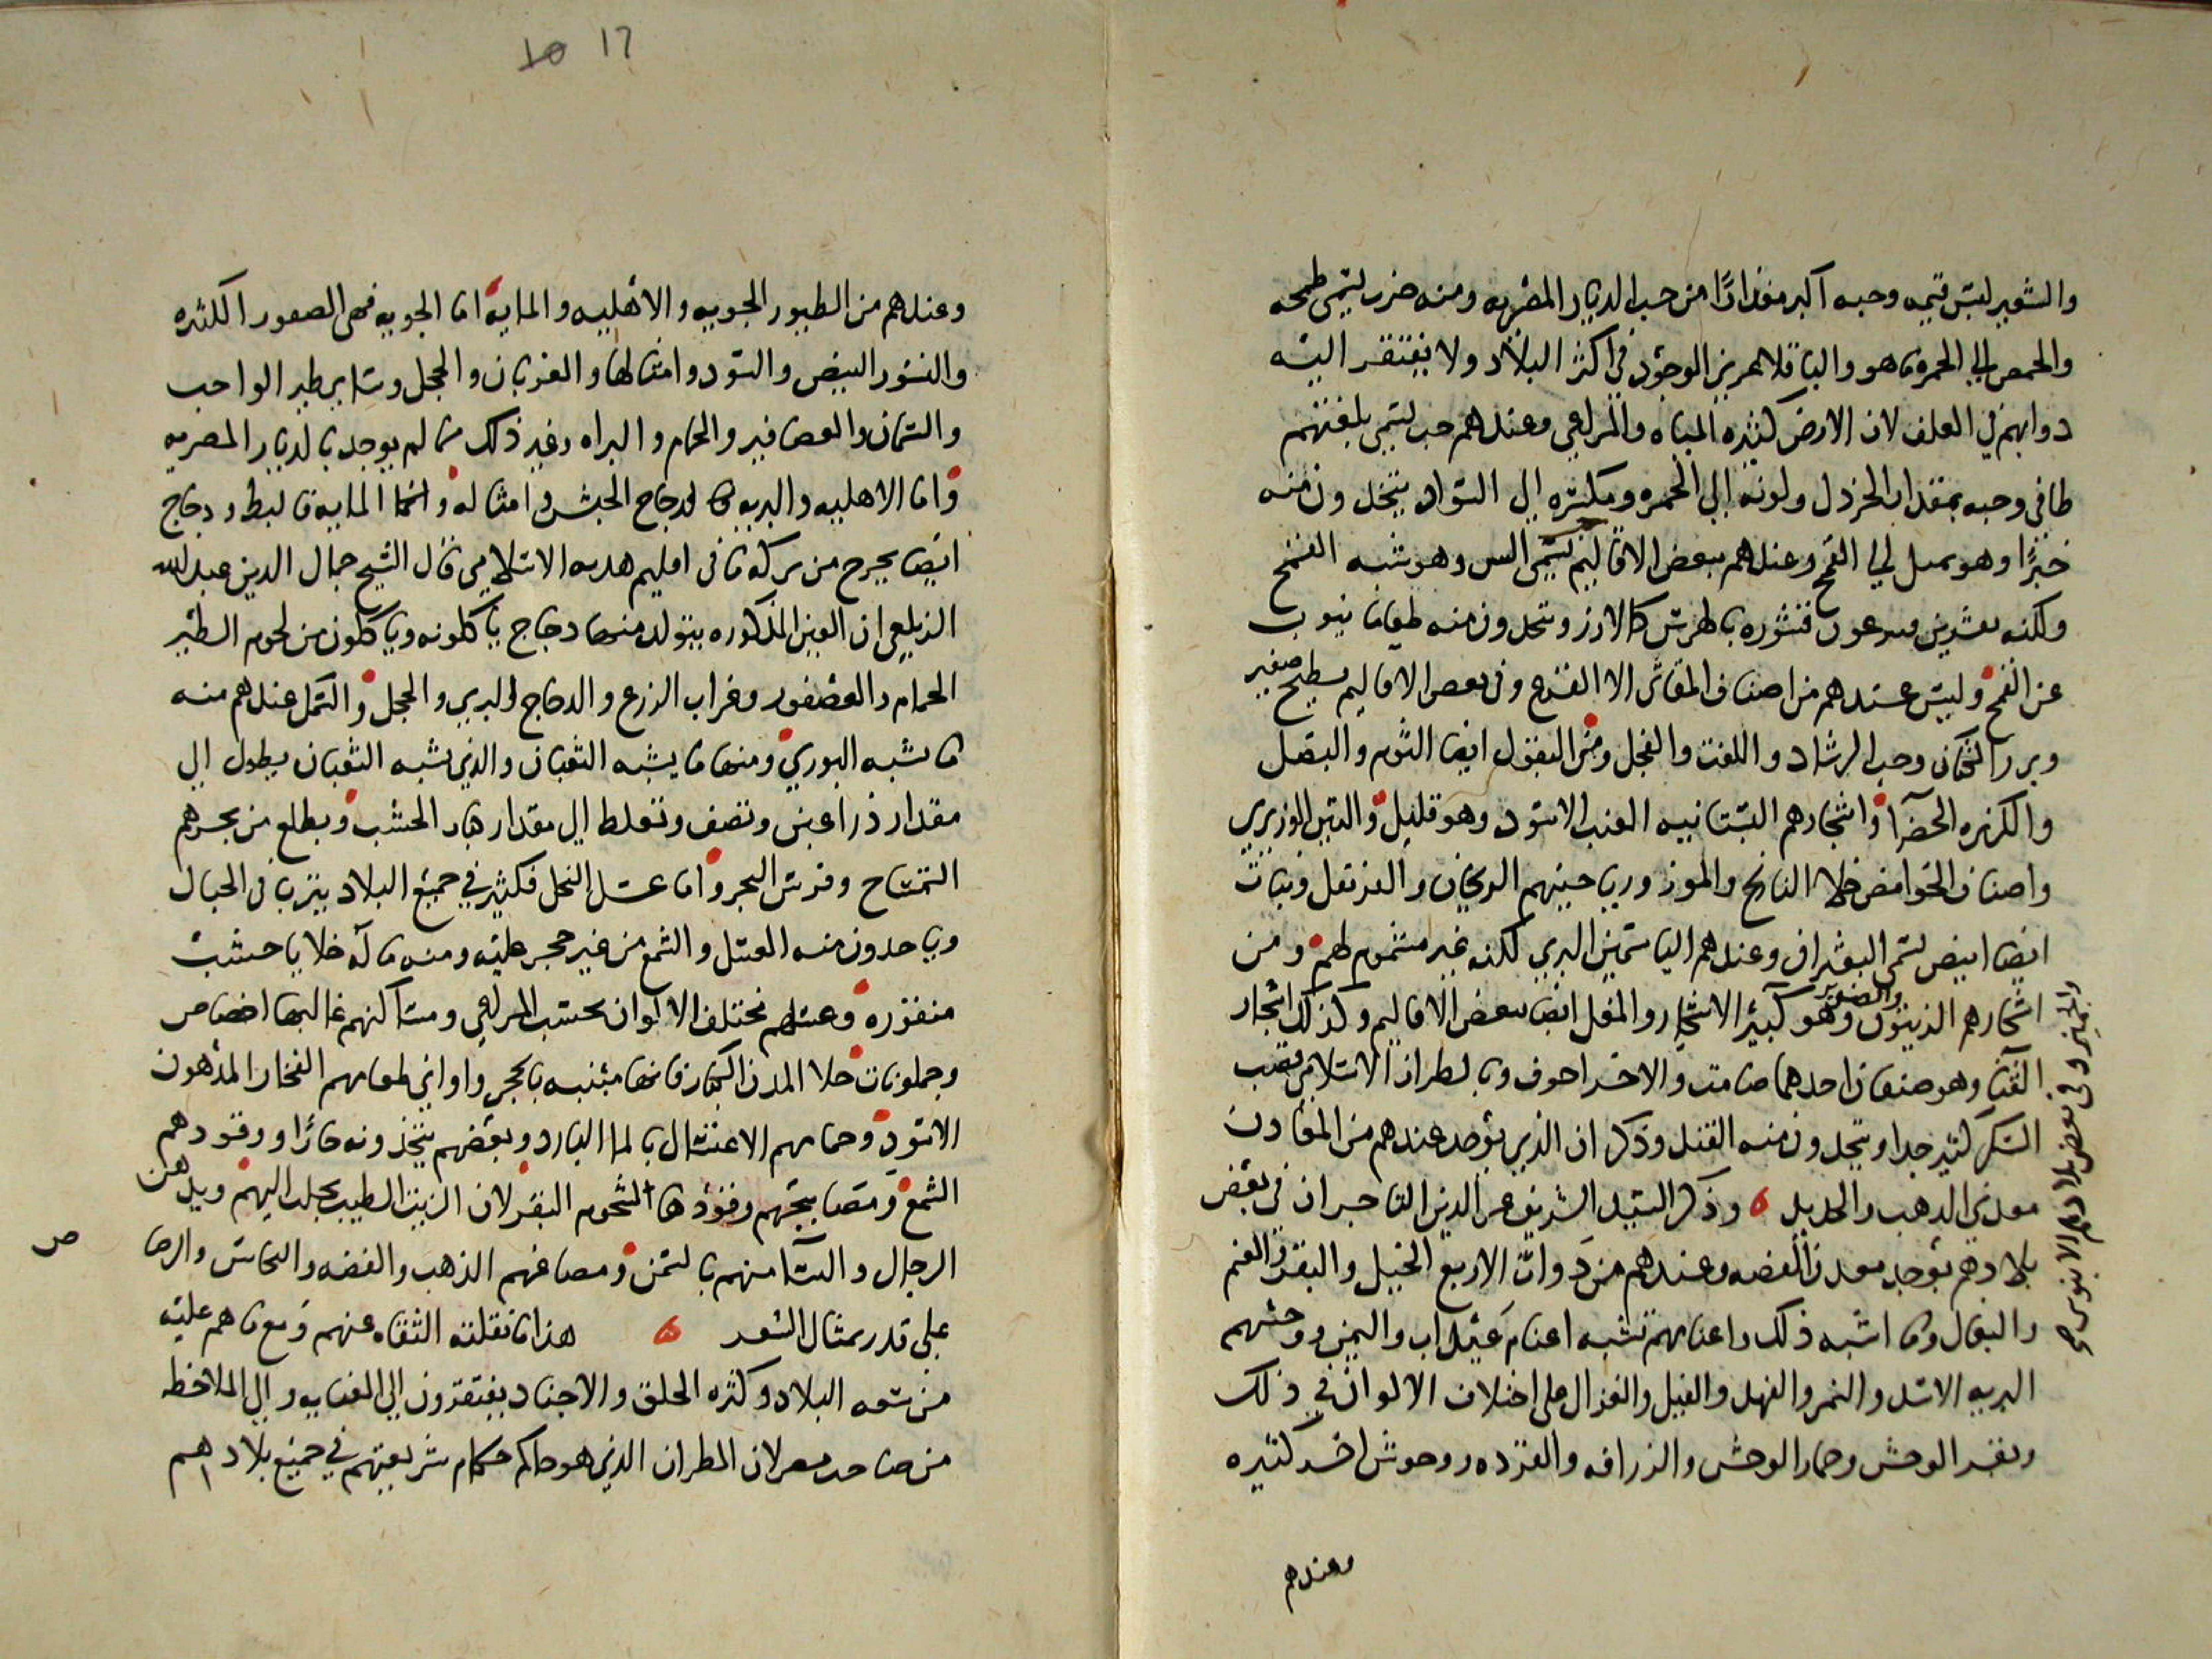 والشعير لبس قيمه وحبه اكبر مقدارًا من حب الديار المصريه ومنه ضرب يسمى طمحه
والحمص الي الحمره ما هو والباقلا عزيز الوجود في اكثر البلاد ولا يفتقر اليه
دوابهم في العلف لان الارض كثيره المياه والمراعي وعندهم حب يسمى بلغتهم
طافي وحبه بمقدار الخردل ولونه الي الحمره ومكسره الي السواد يتخذون منه
خبزًا وهو يميل الي القمح وعندهم ببعض الاقاليم يسمى وهو شبه القمح
ولكنه بقشرين قشوره بالهرش كالارز ويتخذون منه طعاما ينوب
عن القمح وليس عندهم من اصناف المقاثي الا القرع وفي بعض الاقاليم بطيخ صغير
وبزر الكتان وحب الرشاد واللفت والفجل ومن البقول ايضا الثوم والبصل
والكزبره الخضرا واشجارهم البستانيه العنب الاسود وهو قليل والتين الوزيري
واصناف الحوامض خلا النارنج والموز ورياحينهم الريحان والقرنفل ونبات
ايضا ابيض يسمى البعثران وعندهم الياسمين البري لكنه غير مشموم لهم ومن
اشجارهم الزيتون والصنوبر وهو كبير الاشجار والمقل ايضا ببعض الاقاليم وكذلك اشجار
القنا وهو صنفان احدهما صامت والاخر اجوف وبالطراز الاسلامي قصب
السكر كثير جدا ويتخذون منه القند وذكر ان الذي يوجد عندهم من المعادن
معدني الذهب والحديد ه وذكر السيد الشريف عز الدين التاجر ان في بعض
بلادهم يوجد معدن الفضه وعندهم من ذوات الاربع الخيل والبقر والغنم
والبغال وما اشبه ذلك واغنامهم تشبه اغنام عيذاب واليمن ووحشهم
البريه الاسد والنمر والفهد والفيل والغزال على اختلاف الالوان في ذلك
وبقر الوحش وحمار الوحش والزرافه والقرده ووحوش اخر كثيره
والجميز وفي بعض بلادهم الابنوس
وعندهم
١٥ ١٦
وعندهم من الطيور الجويه والاهليه والمايه اما الجويه فهي الصقور الكثيره
والنسور البيض والسود وامثالها والغربان والحجل وساير طير الواجب
والسمان والعصافير والحمام والبزاه وغير ذلك مما لم يوجد بالديار المصريه
واما الاهليه والبريه فالدجاج الحبش وامثاله واما المايه فالبط ودجاج
ايضا يخرج من بركه ما في اقليم هديه الاسلامي قال الشيخ جمال الدين عبد الله
الزيلعي ان العين المذكوره يتولد منها دجاج ياكلونه وياكلون من لحوم الطير
الحمام والعصفور وغراب الزرع والدجاج البري والحجل والسمك عندهم منه
ما يشبه البوري ومنها ما يشبه الثعبان والذي يشبه الثعبان يطول الي
مقدار ذراعين ونصف وتغلظ الي مقدار الخشب ويطلع من بحرهم
التمساح وفرس البحر واما عسل النحل فكثير في جميع البلاد يتربا في الجبال
وياخذون منه العسل والشمع من غير حجر عليه ومنه ما له خلايا خشب
منقوره وعسلهم مختلف الالوان بحسب المراعي ومساكنهم غالبها اخصاص
وجملونات خلا المدن الكبار فانها مبنيه بالحجر واواني طعامهم الفخار المدهون
الاسود وحمامهم الاغتسال بالما البارد وبعضهم يتخذونه حارًا ووقودهم
الشمع ومصابيحهم وقودها شحوم البقر لان الزيت الطيب يجلب اليهم ويدهن
الرجال والنسا منهم بالسمن ومصاغهم الذهب والفضه والنحاس والرصا
ص
على قدر مثال السعد ه هذا ما نقلته الثقاه عنهم ومع ما هم عليه
من سعه البلاد وكثره الخلق والاجناد يفتقرون الي العنايه والي الملاحظه
من صاحب مصر لان المطران الذي هو حاكم حكام شريعتهم في جميع بلادهم